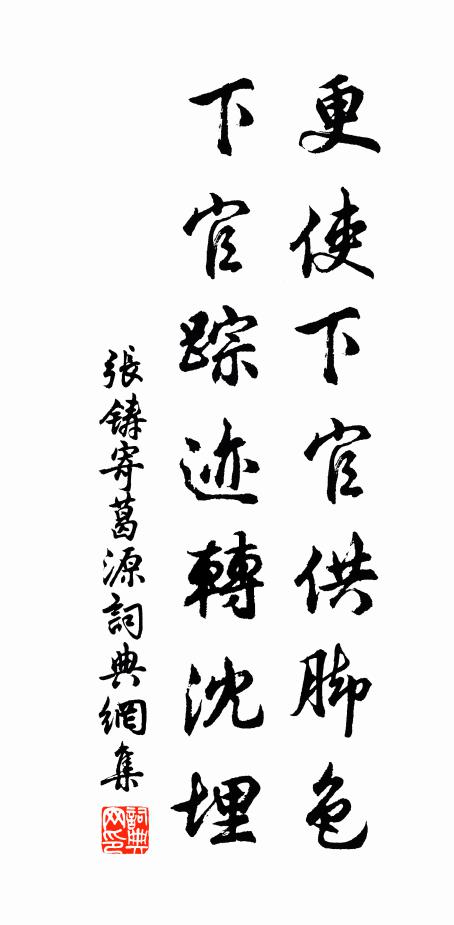 更使下官供脚色
下官踪迹轉沈埋
張鑄寄葛源詞典網集
詞典网印